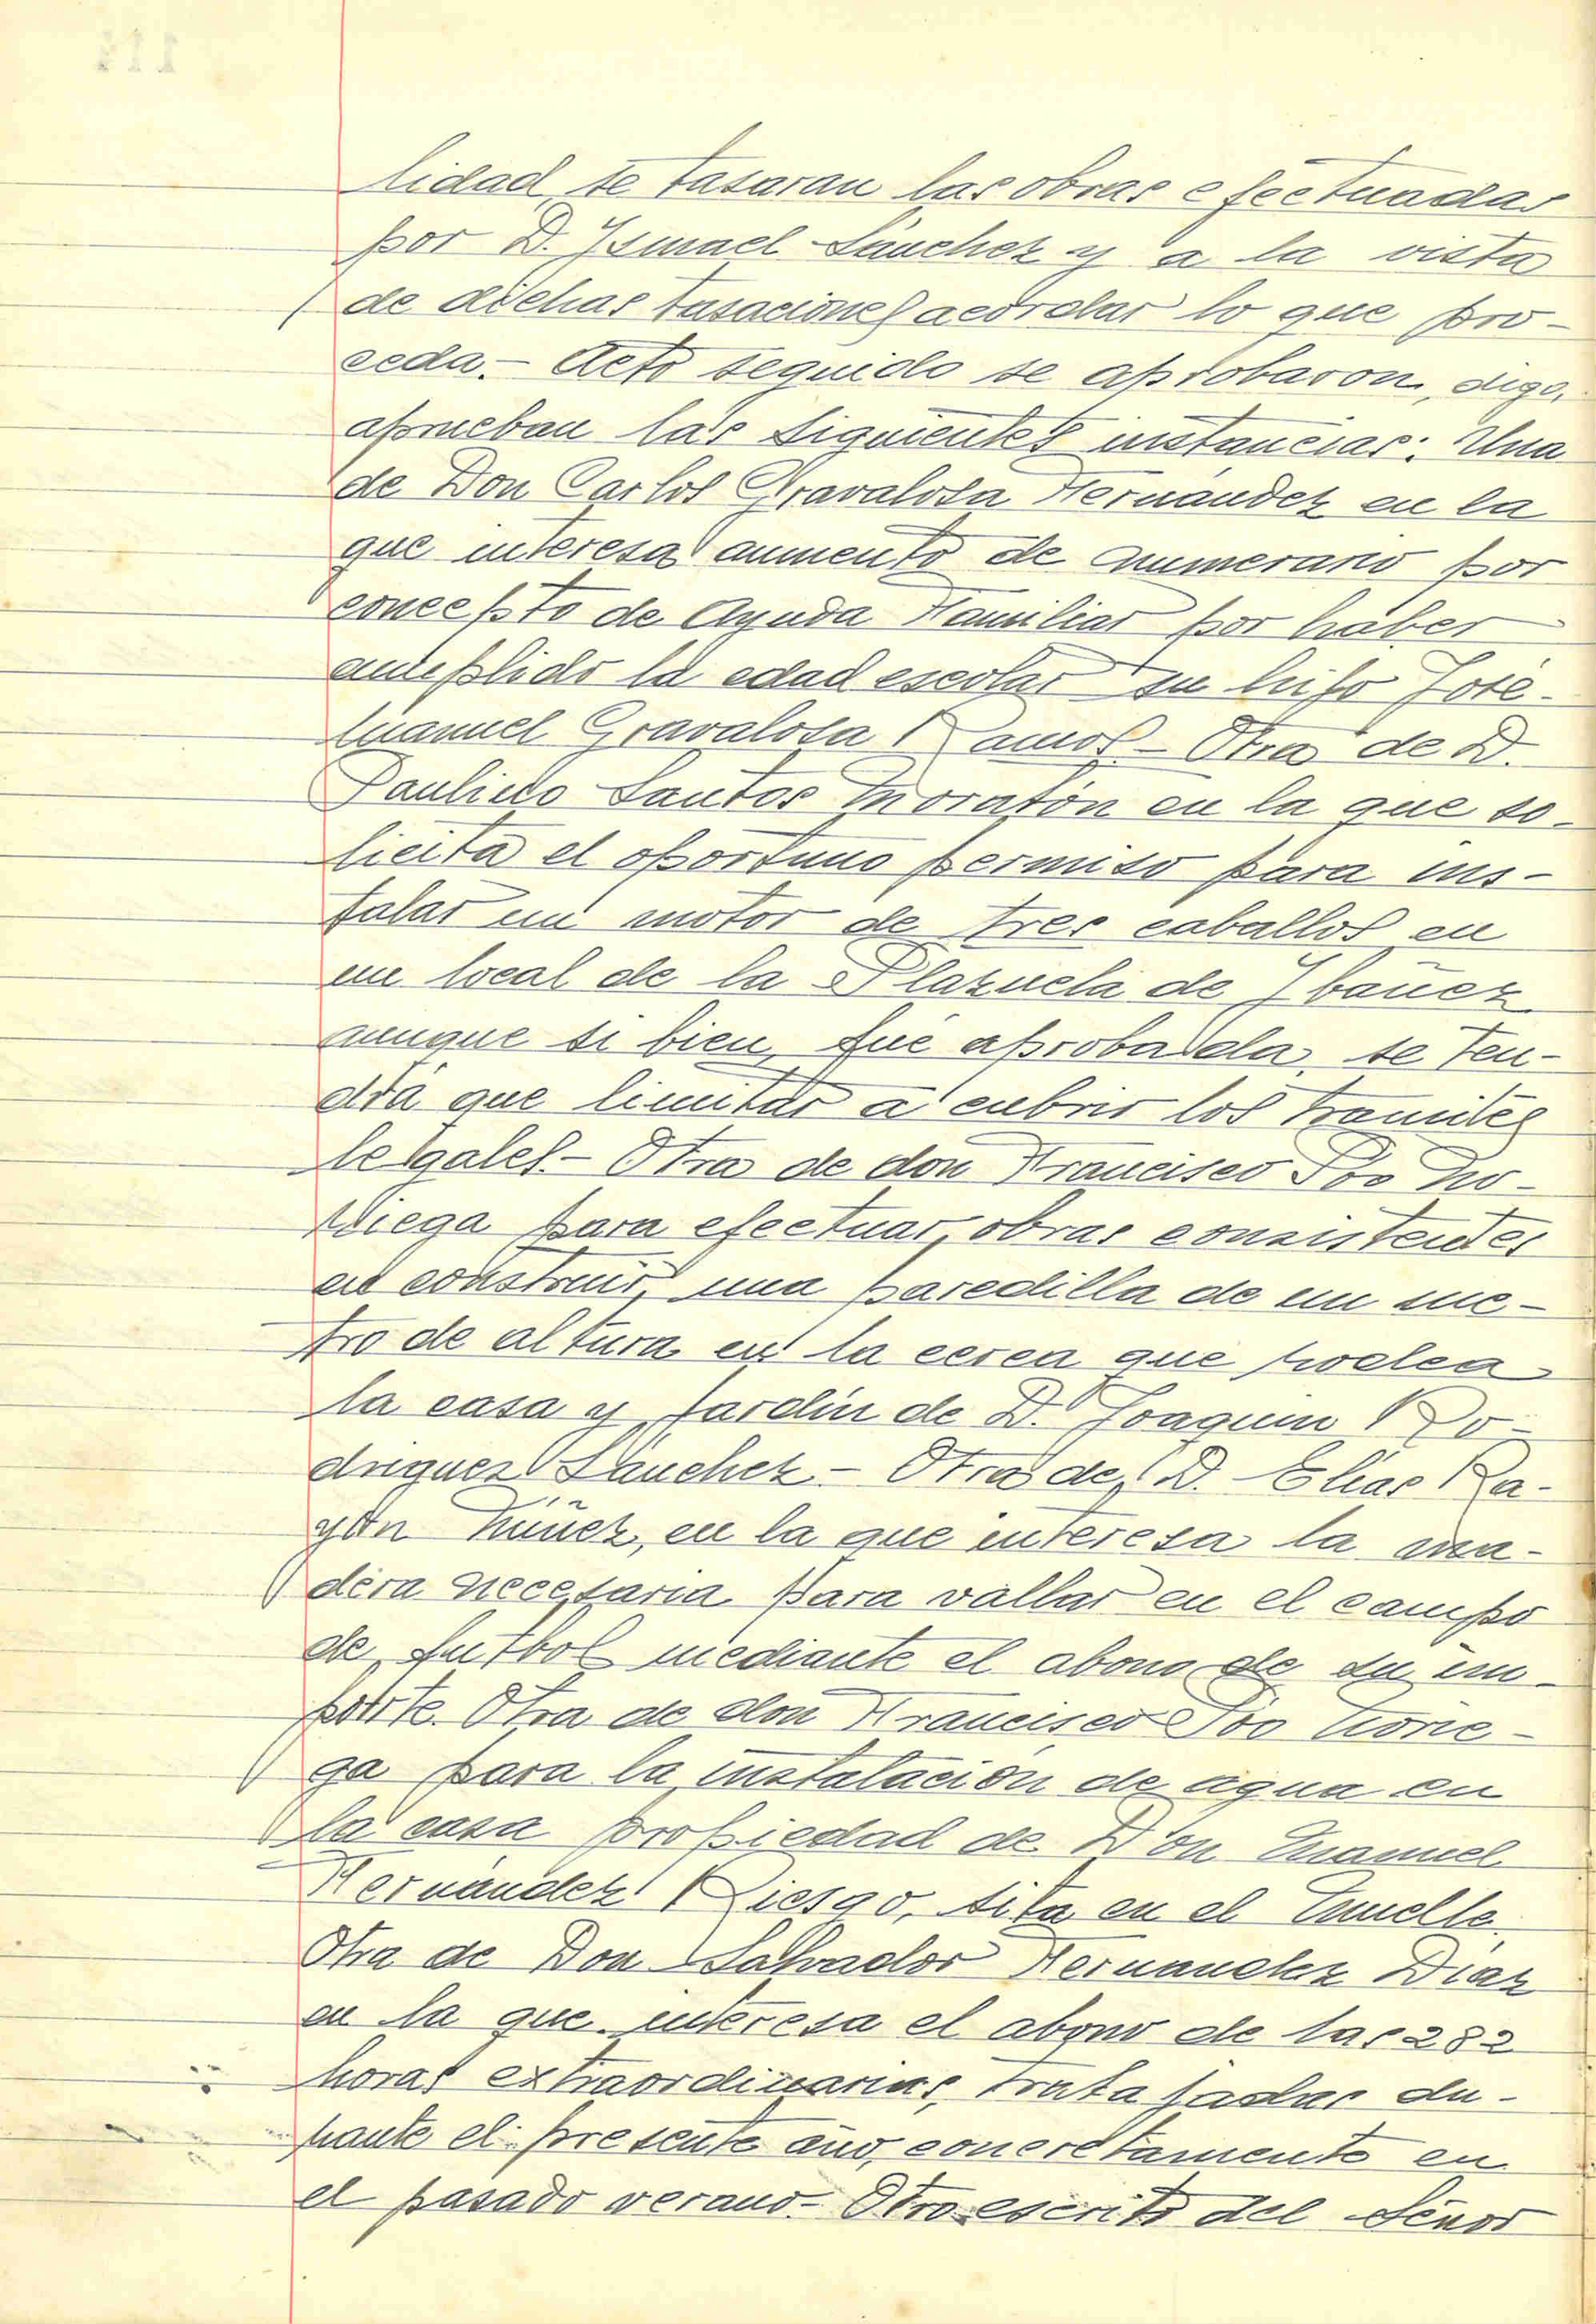 lidad, se tasaran las obras efectuadas
por D. Ismael Sánchez y a la vista
de dichas tasaciones acordar lo que pro-
ceda.- Acto seguido se aprobaron, digo,
aprueban las siguientes instancias: Una
de Don Carlos Gravalosa Hernández en la
que interesa aumento de numerario por
concepto de Ayuda Familiar por haber
cumplido la edad escolar su hijo José-
Manuel Gravalosa Ramos.- Otra de D.
Paulino Santos Moratón en la que so-
licita el oportuno permiso para ins-
talar un motor de tres caballos en
un local de la Plazuela de Ibañez
aunque si bien, fué aprobada, se ten-
drá que limitar a cubrir los tramites
legales.- Otra de don Francisco Poo No-
riega para efectuar obras consistentes
en construir una paredilla de un me-
tro de altura en la cerca que rodea
la casa y jardín de D. Joaquin Ro-
driguez Sánchez.- Otra de D. Elías Ra-
yón Núñez, en la que interesa la ma-
dera necesaria para vallar en el campo
de futbol mediante el abono de su im-
porte. Otra de don Francisco Poo Norie-
ga para la instalación de agua en
la casa propiedad de Don Manuel
Hernández Riesgo, sita en el Muelle.
Otra de Don Salvador Hernandez Diaz
en la que interesa el abono de las 282
horas extraordinarias, trabajadas du-
rante el presente año, concretamente en
el pasado verano.- Otro escrito del Señor